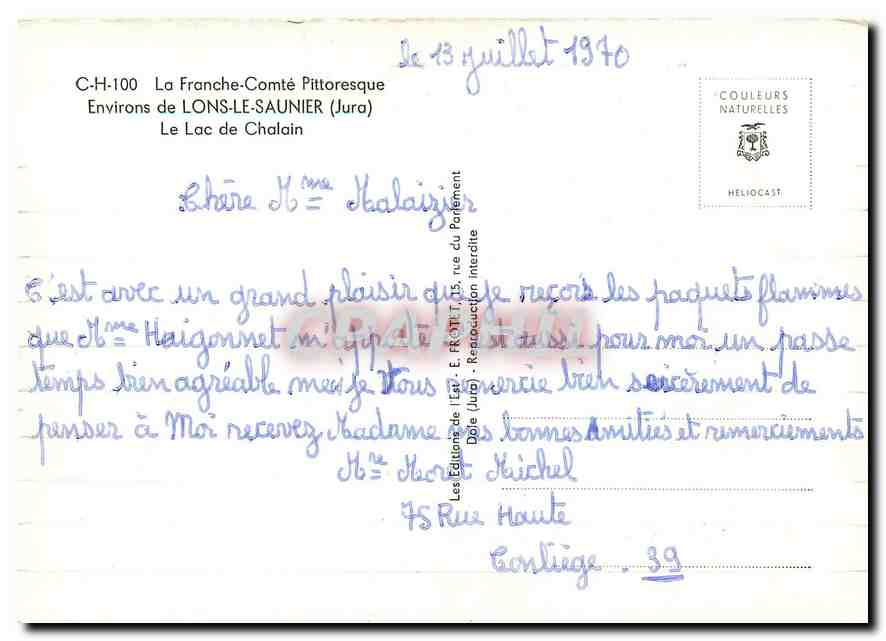 le 13 juillet 1970
C-H-100 La Franche-Comté Pittoresque
Environs de LONS-LE-SAUNIER (Jura)
Le Lac de Chalain
COULEURS
NATURELLES
HELIOCAST
Chère Mme Malaizier
C'est avec un grand plaisir que je reçois les paquets flammes
que Mme Haigonnet m'apporte c'est aussi pour moi un passe
temps bien agréable merci je Vous remercie bien sincèrement de
penser à Moi recevez Madame mes bonnes Amitiés et remerciements
Mre Moret Michel
75 Rue Haute
Conliège . 39
Les Editions de l'Est - E. FROTET, 15, rue du Parlement
Dole (Jura) - Reproduction Interdite